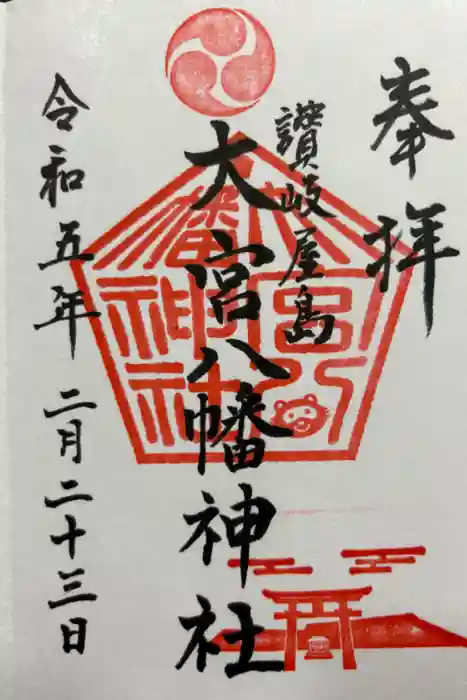 奉拝
讃岐屋島
大宮八幡神社
令和五年二月二十三日
大宮八
幡神社